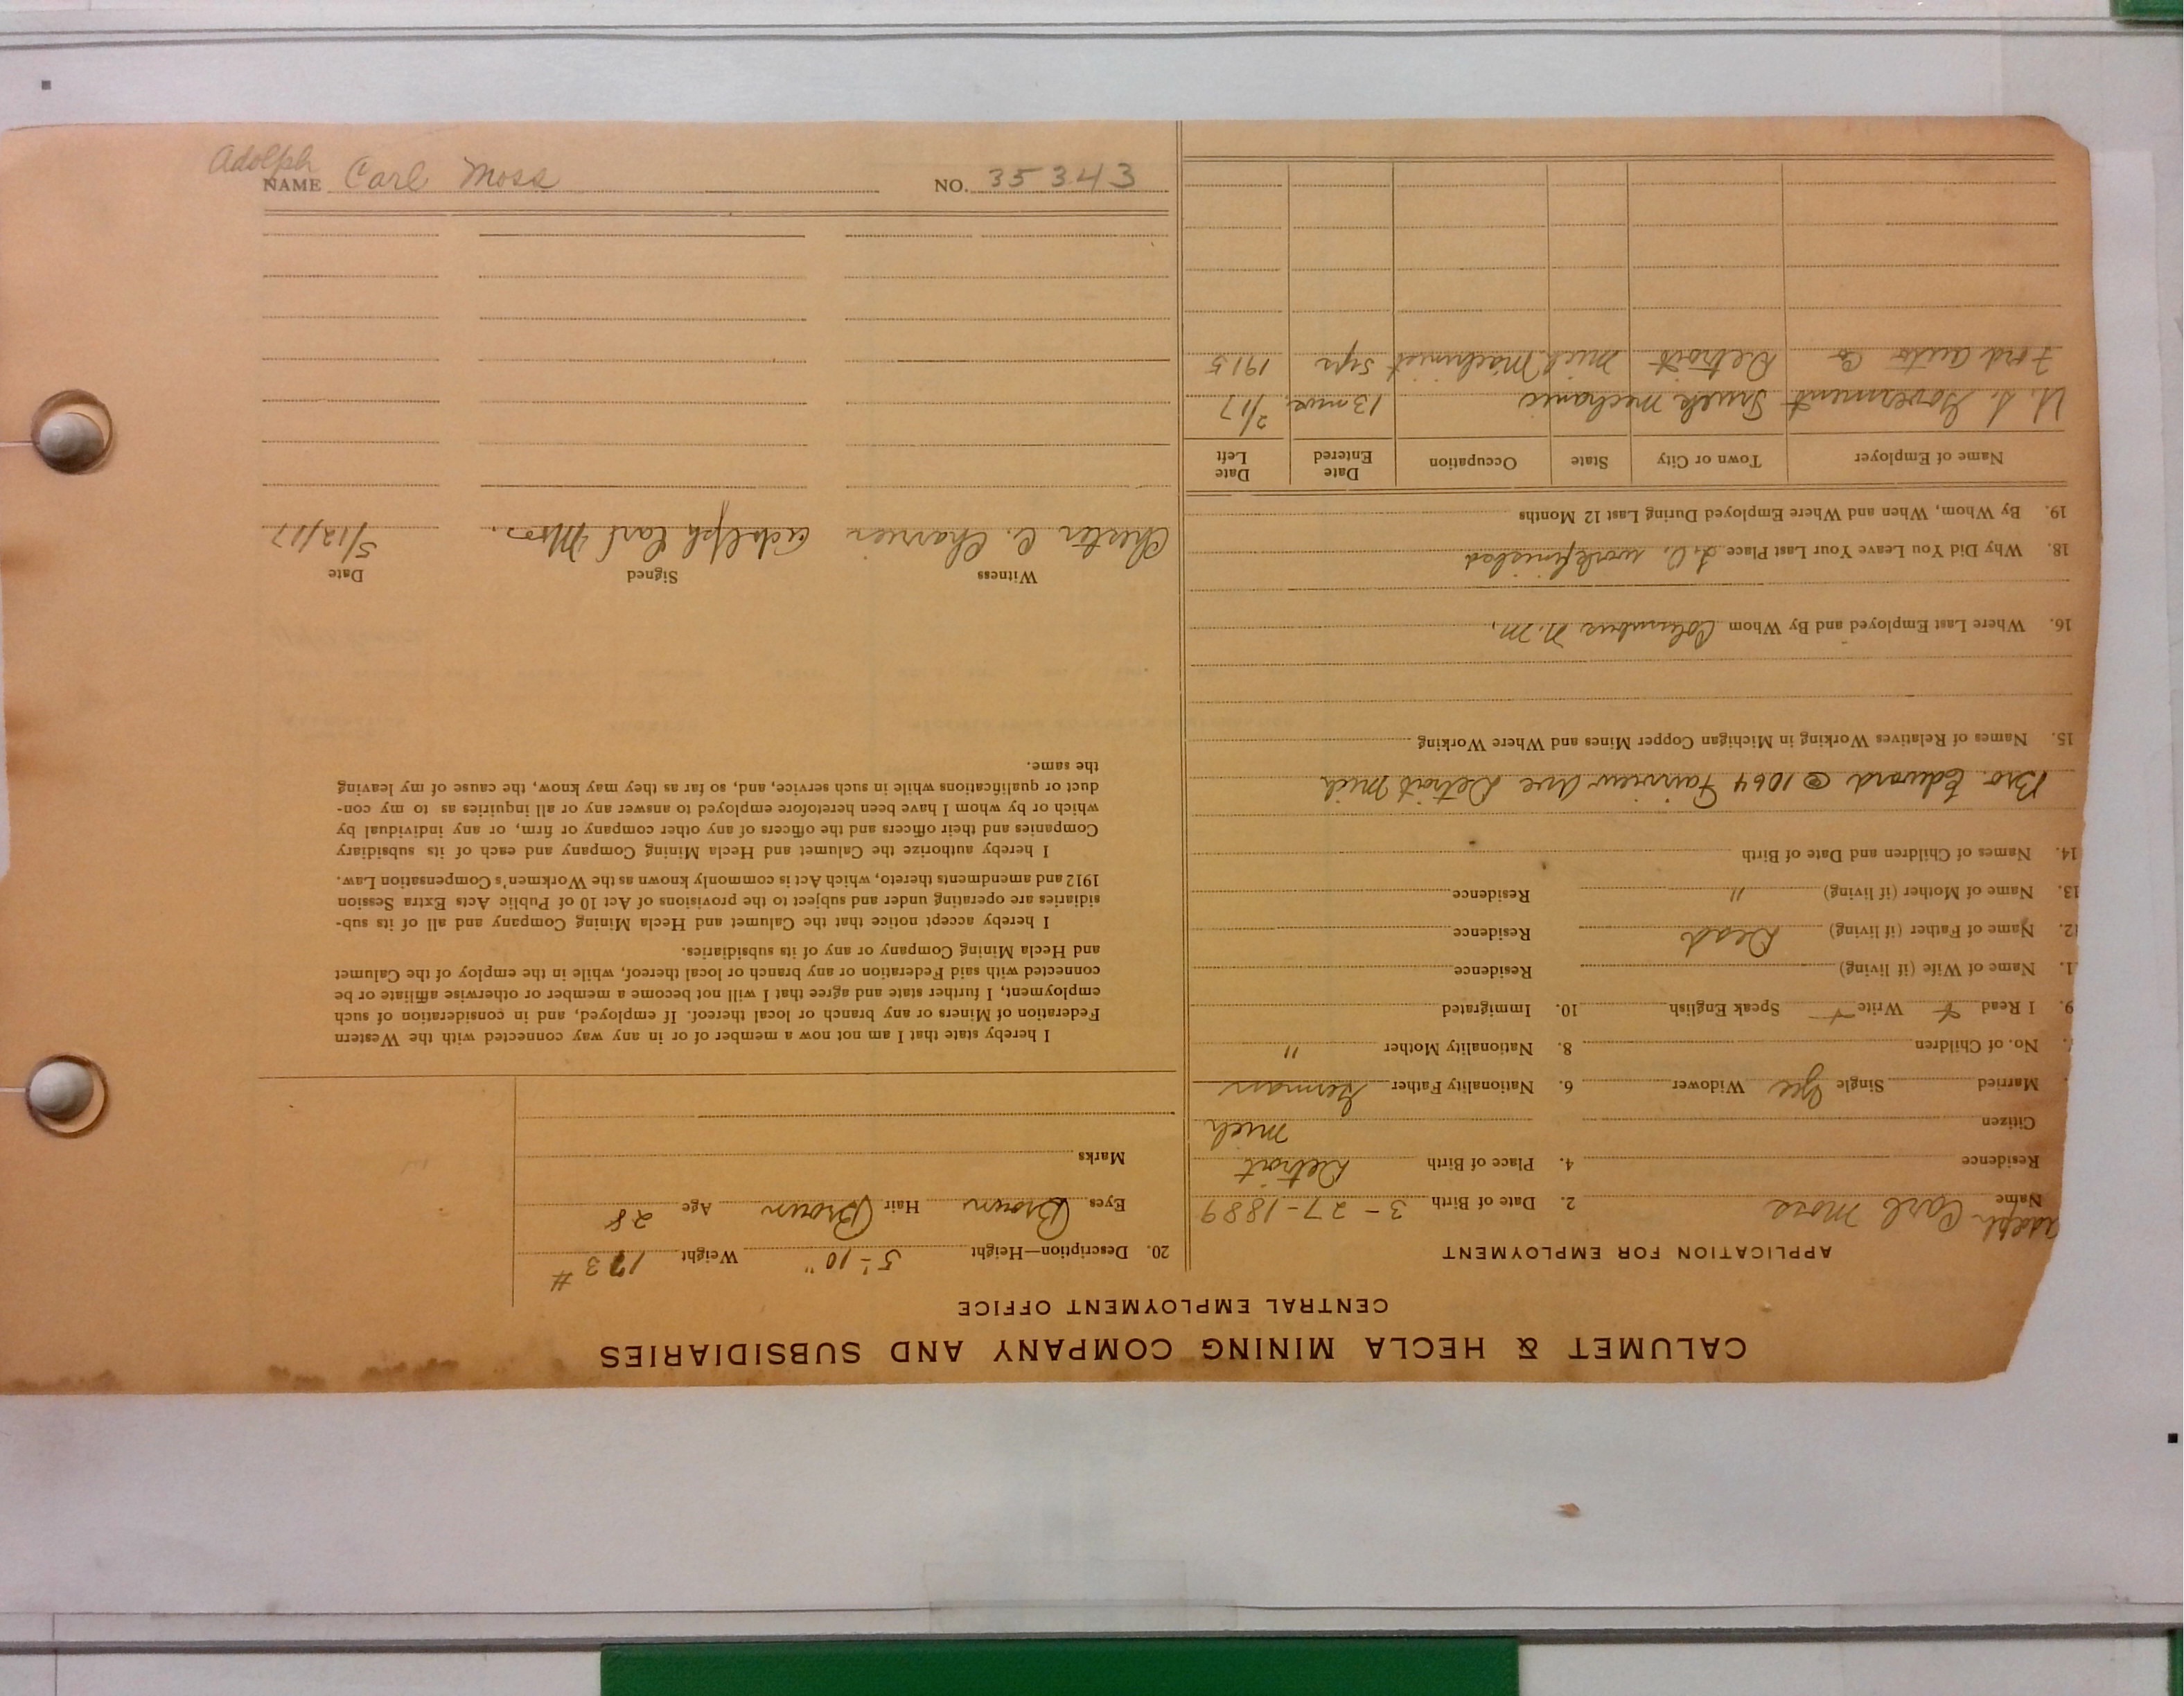 Adolph
NAME Carl Moss NO. 35343
CALUMET & HECLA MINING COMPANY AND SUBSIDIARIES
CENTRAL EMPLOYMENT OFFICE
APPLICATION FOR EMPLOYMENT
Name Adolph Carl Moss 2. Date of Birth 3-27-1889
Residence 4. Place of Birth Detroit
Citizen Mich
Married Single yes Widower 6. Nationality Father German
No. of Children 8. Nationality Mother "
9. I Read + Write + Speak English 10. Immigrated
1. Name of Wife (if living) Residence
12. Name of Father (if living) Dead Residence
13. Name of Mother (if living) " Residence
14. Names of Children and Date of Birth
Bro. Edward @ 1064 Fairview Ave Detroit Mich
15. Names of Relatives Working in Michigan Copper Mines and Where Working
16. Where Last Employed and By Whom Columbus N.M.
18. Why Did You Leave Your Last Place work finished
19. By Whom, When and Where Employed During Last 12 Months
Name of Employer Town or City State Occupation Date Entered Date Left
U. S. Government Truck Mechanic 13 mos. 2/17
Ford Auto Co Detroit Mich Machinist 5 yrs 1915
20. Description—Height 5'-10" Weight 173 #
Eyes Brown Hair Brown Age 28
Marks
I hereby state that I am not now a member of or in any way connected with the Western
Federation of Miners or any branch or local thereof. If employed, and in consideration of such
employment, I further state and agree that I will not become a member or otherwise affiliate or be
connected with said Federation or any branch or local thereof, while in the employ of the Calumet
and Hecla Mining Company or any of its subsidiaries.
I hereby accept notice that the Calumet and Hecla Mining Company and all of its sub-
sidiaries are operating under and subject to the provisions of Act 10 of Public Acts Extra Session
1912 and amendments thereto, which Act is commonly known as the Workmen's Compensation Law.
I hereby authorize the Calumet and Hecla Mining Company and each of its subsidiary
Companies and their officers and the officers of any other company or firm, or any individual by
which or by whom I have been heretofore employed to answer any or all inquiries as to my con-
duct or qualifications while in such service, and, so far as they may know, the cause of my leaving
the same.
Witness Signed Date
Chester C. Charrier Adolph Carl Moss. 5/12/17